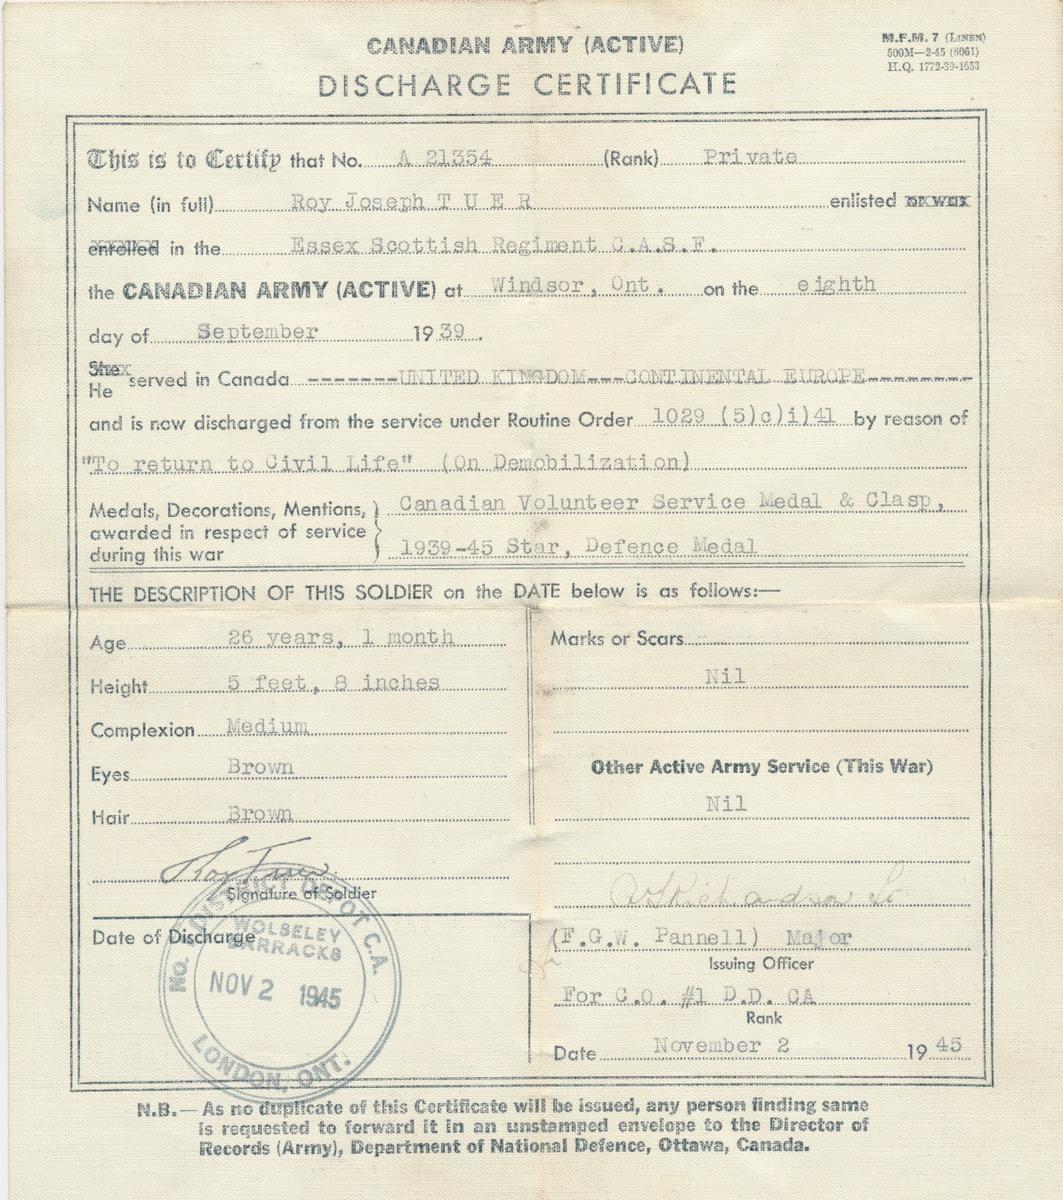 CANADIAN ARMY (ACTIVE)
DISCHARGE CERTIFICATE
M.F.M. 7 (LINEN)
500M—2-45 (6061)
H.Q. 1772-39-1653
This is to Certify that No. A 21354 (Rank) Private
Name (in full) Roy Joseph T U E R enlisted or was
enrolled in the Essex Scottish Regiment C.A.S.F.
the CANADIAN ARMY (ACTIVE) at Windsor, Ont. on the eighth
day of September 19 39.
She
He served in Canada -------UNITED KINGDOM---CONTINENTAL EUROPE--------
and is now discharged from the service under Routine Order 1029 (5)c)i)41 by reason of
"To return to Civil Life" (On Demobilization)
Medals, Decorations, Mentions, awarded in respect of service during this war } Canadian Volunteer Service Medal & Clasp,
1939-45 Star, Defence Medal
THE DESCRIPTION OF THIS SOLDIER on the DATE below is as follows:—
Age 26 years, 1 month
Height 5 feet, 8 inches
Complexion Medium
Eyes Brown
Hair Brown
Roy Tuer
Signature of Soldier
Marks or Scars
Nil
Other Active Army Service (This War)
Nil
Richardson
(F.G.W. Pannell) Major
Issuing Officer
For C.O. #1 D.D. CA
Rank
Date November 2 19 45
Date of Discharge
DISTRICT DEPOT C.A.
WOLSELEY
BARRACKS
NOV 2 1945
No.
LONDON, ONT.
N.B.—As no duplicate of this Certificate will be issued, any person finding same
is requested to forward it in an unstamped envelope to the Director of
Records (Army), Department of National Defence, Ottawa, Canada.